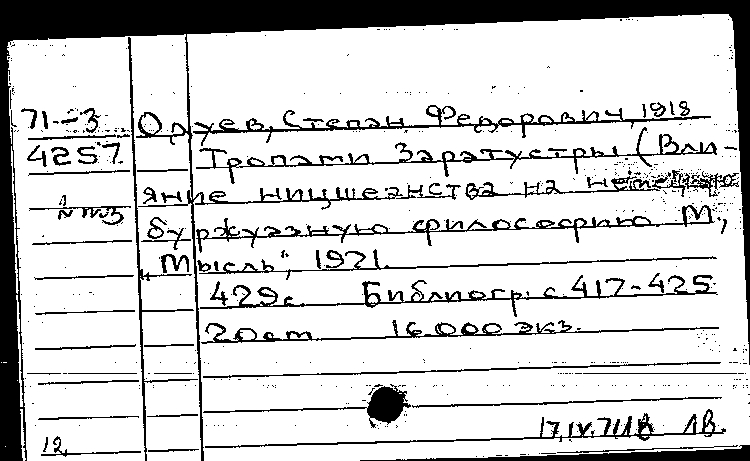 71-3 Одуев, Степан Федорович, 1918
4257 Тропами Заратустры (Вли-
яние ницшеанства на немецкую
буржуазную философию. М,
„Мысль", 1971.
429с. Библиогр: с. 417-425
20cm 16.000 экз.
12. 17.IV.71 1В.